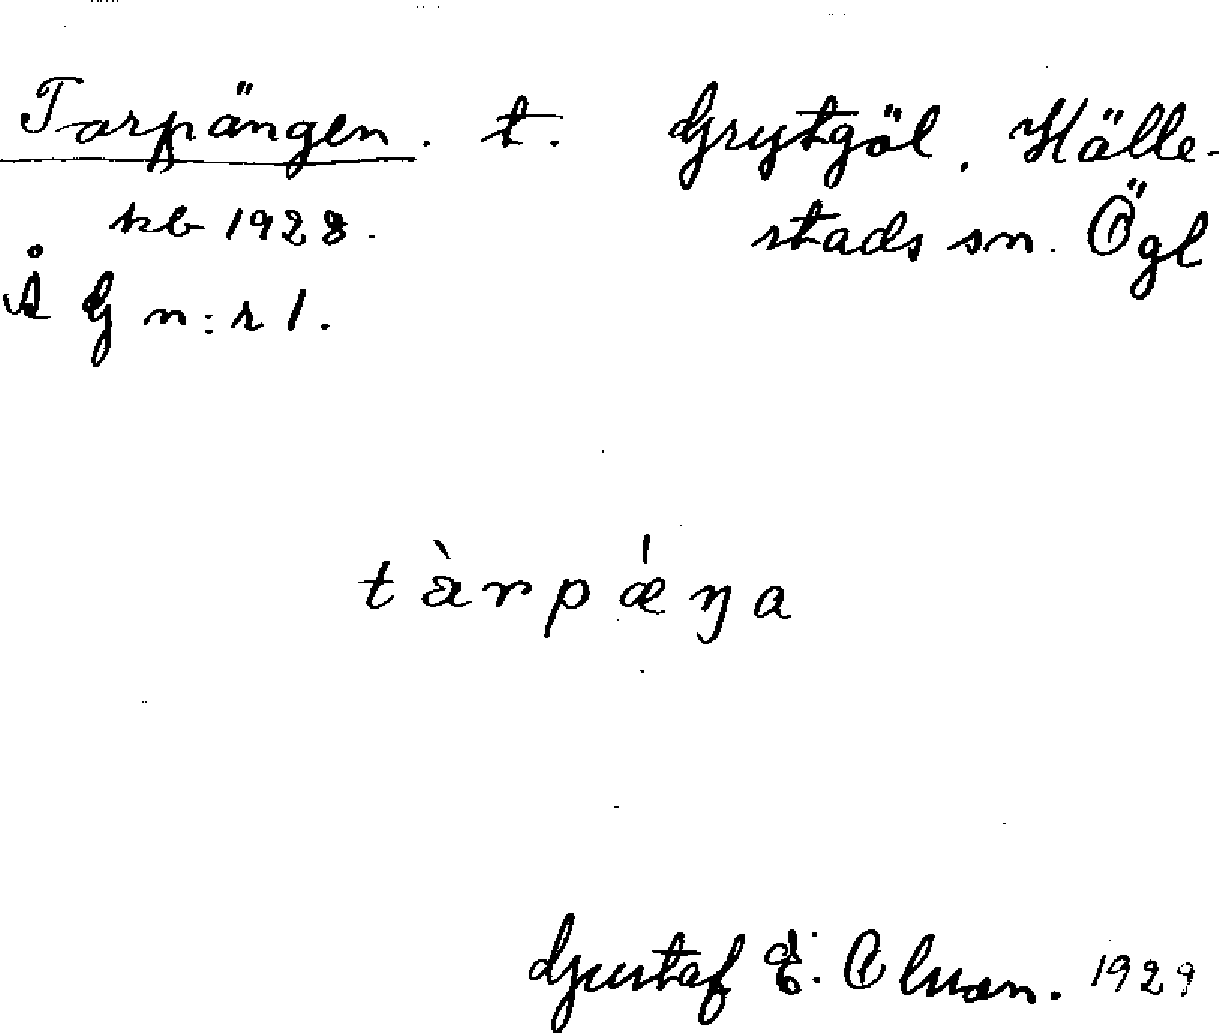 Torpängen. t. Grytgöl. Hälle-
kb 1928. stads sn. Ögl
Å G n:r 1.
tàrpǽŋa
Gustaf E. Olsson. 1929